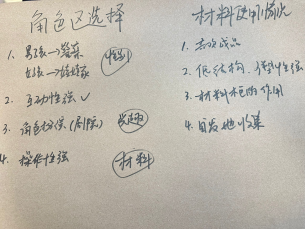 角色区选择
1. 男孩→烧菜
女孩→娃娃家
性别
2. 互动性强✓
3. 角色扮演(剧院)
兴趣
4. 操作性强
材料
材料使用情况
1. 喜欢成品
2. 低结构、
3. 材料柜的作用
4. 自发地收集